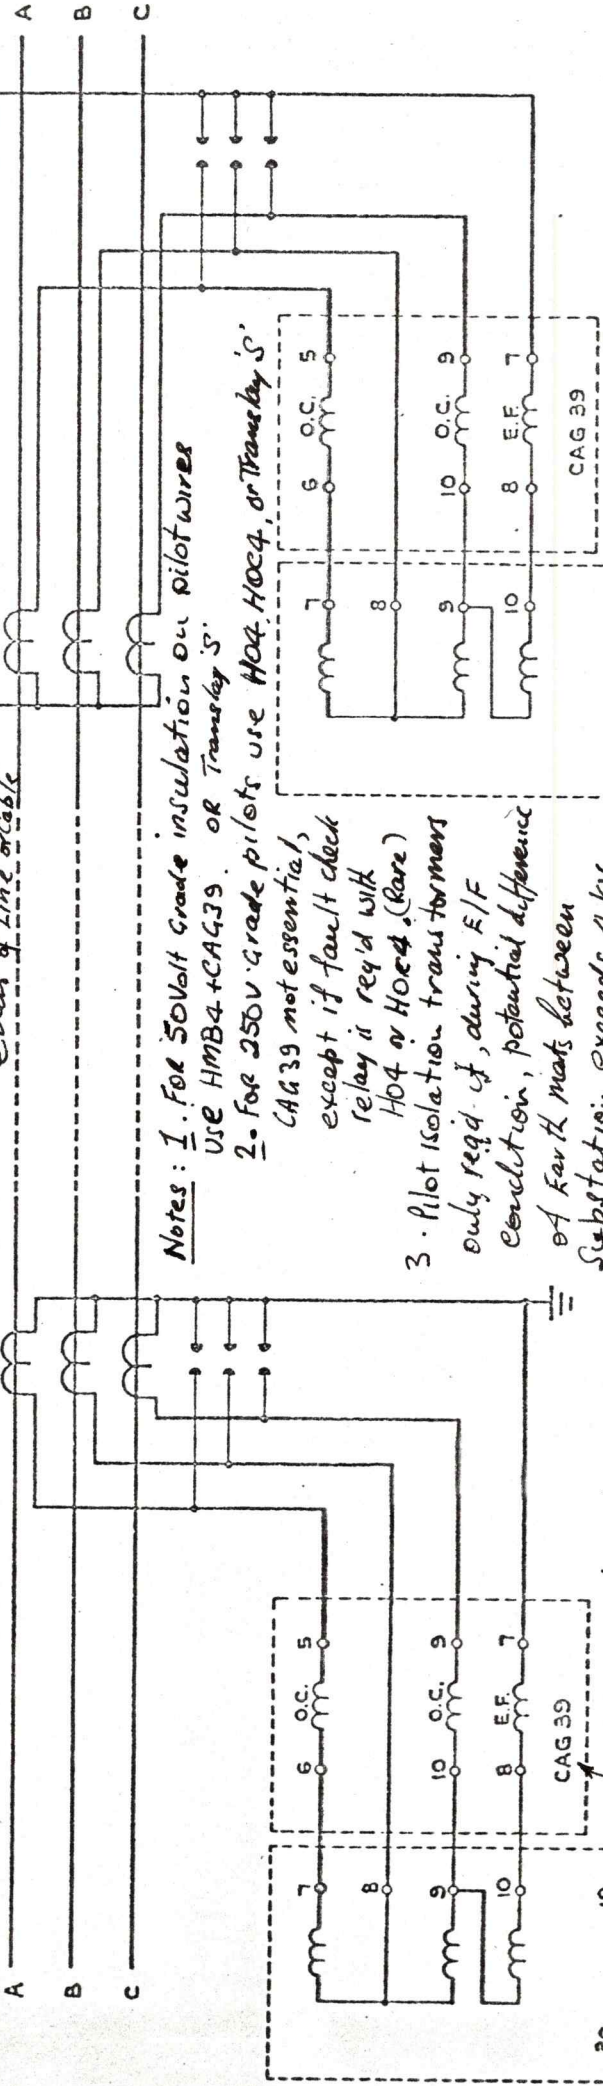 ends of Line or Cable
A
B
C
A
B
C
Notes: 1. FOR 50Volt Grade insulation on pilot wires
USE HMB4+CAG39 OR Translay 'S'
2. FOR 250V Grade pilots use HO4, HOC4, or Translay 'S'
CAG39 not essential,
except if fault check
relay is req'd with
HO4 or HOC4. (Rare)
3. Pilot isolation transformers
only req'd if, during E/F
condition, potential difference
of Earth mats between
Substation exceeds
7
6
O.C.
5
8
9
10
O.C.
9
10
8
E.F.
7
CAG 39
7
6
O.C.
5
8
9
10
O.C.
9
10
8
E.F.
7
CAG 39